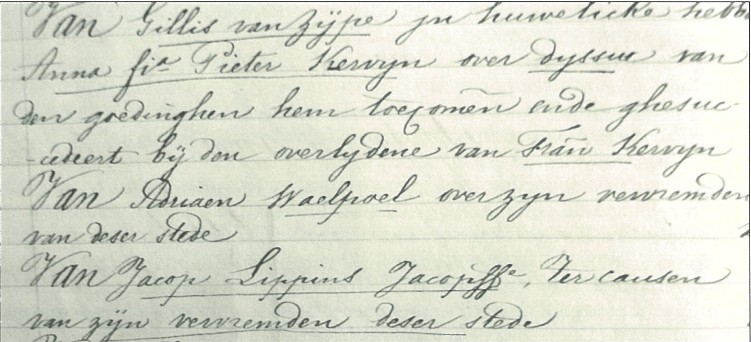 Van Gillis van Zijpe jn huwelicke hebb
Anna fi.ᵃ Pieter Kervyn over dyssue van
den goedinghen hem toecomēn ende ghesuc-
-cedeert bij den overlydene van Frān Kervyn
Van Adriaen Waelpoel over zyn vervremden
van deser stede
Van Jacop Lippins Jacopsse, Ter causen
van zijn vervremden deser stede